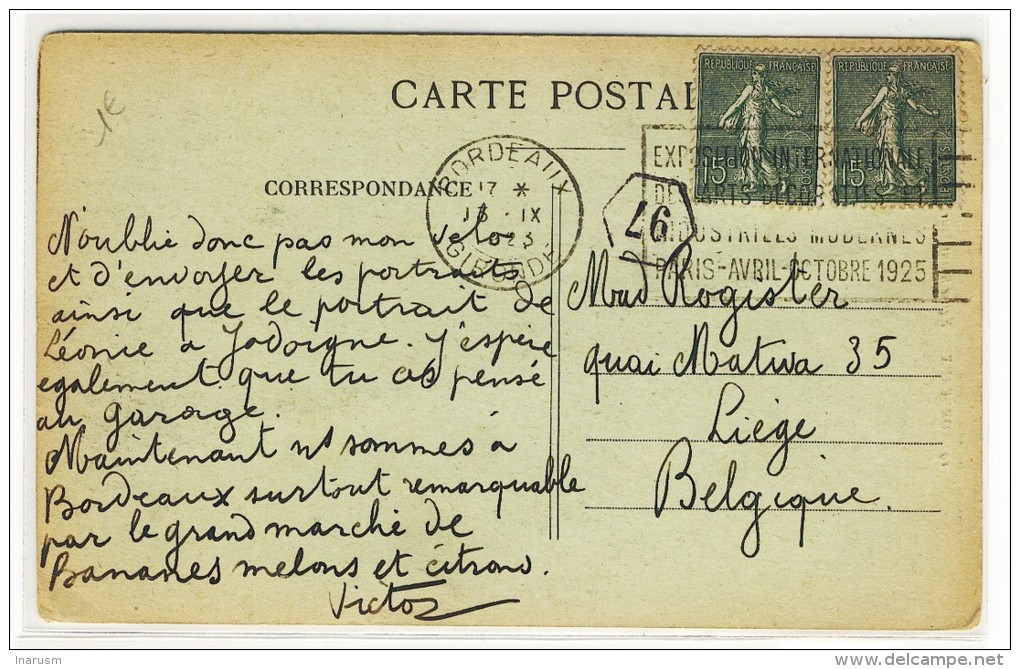 1€
CARTE POSTAL
REPUBLIQUE FRANÇAISE
15c
POSTES
REPUBLIQUE FRANÇAISE
15c
POSTES
CORRESPONDANCE
BORDEAUX
17 *
13 - IX
23
GIRONDE
97
EXPOSITION INTERNATIONALE
DES ARTS DECORATIFS ET
INDUSTRIELS MODERNES
PARIS-AVRIL-OCTOBRE 1925
N'oublie donc pas mon velo
et d'envoyer les portraits
ainsi que le portrait de
Léonie a Jodoigne. J'espère
egalement que tu as pensé
au garage.
Maintenant ns sommes à
Bordeaux surtout remarquable
par le grand marché de
Bananes melons et citrons.
Victor
Mad Rogister
quai Mativa 35
Liége
Belgique.
Inarusm
delcampe.net